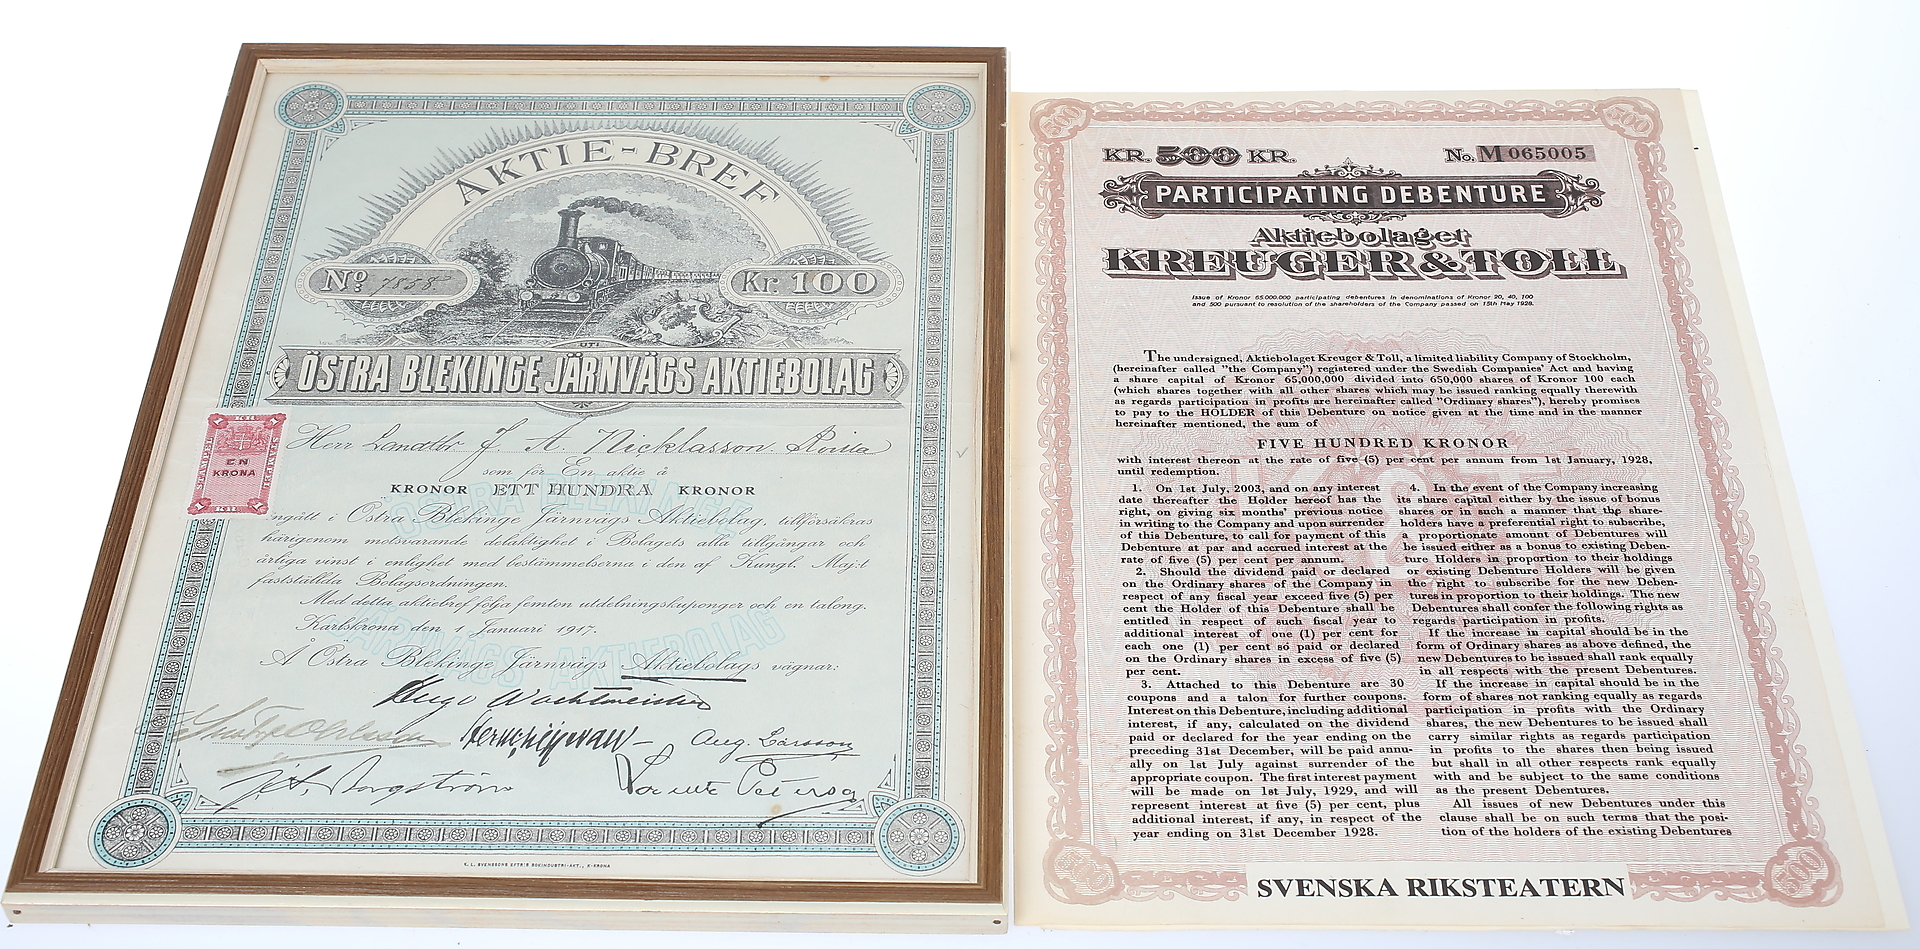 AKTIE-BREF
No 7858
Kr. 100
UTI
ÖSTRA BLEKINGE JÄRNVÄGS AKTIEBOLAG
KR
STÄMPEL
STÄMPEL
1
1
EN
KRONA
1
1
KR
Herr J. A. Nicklasson
som för En aktie à
KRONOR ETT HUNDRA KRONOR
ngått i Östra Blekinge Järnvägs Aktiebolag, tillförsäkras
härigenom motsvarande delaktighet i Bolagets alla tillgångar och
årliga vinst i enlighet med bestämmelserna i den af Kungl. Maj:t
fastställda Bolagsordningen.
Med detta aktiebref följa femton utdelningskuponger och en talong.
Karlskrona den 1 Januari 1917.
Å Östra Blekinge Järnvägs Aktiebolags vägnar:
Hugo Wachtmeister
Aug. Larsson
K. L. SVENSSONS EFTR'S BOKINDUSTRI-AKT., K-KRONA
500
500
KR. 500 KR.
No. M 065005
PARTICIPATING DEBENTURE
Aktiebolaget
KREUGER & TOLL
Issue of Kronor 65.000.000 participating debentures in denominations of Kronor 20, 40, 100
and 500 pursuant to resolution of the shareholders of the Company passed on 15th May 1928.
The undersigned, Aktiebolaget Kreuger & Toll, a limited liability Company of Stockholm,
(hereinafter called "the Company") registered under the Swedish Companies' Act and having
a share capital of Kronor 65,000,000 divided into 650,000 shares of Kronor 100 each
(which shares together with all other shares which may be issued ranking equally therewith
as regards participation in profits are hereinafter called "Ordinary shares"), hereby promises
to pay to the HOLDER of this Debenture on notice given at the time and in the manner
hereinafter mentioned, the sum of
FIVE HUNDRED KRONOR
with interest thereon at the rate of five (5) per cent per annum from 1st January, 1928,
until redemption.
1. On 1st July, 2003, and on any interest
date thereafter the Holder hereof has the
right, on giving six months' previous notice
in writing to the Company and upon surrender
of this Debenture, to call for payment of this
Debenture at par and accrued interest at the
rate of five (5) per cent per annum.
2. Should the dividend paid or declared
on the Ordinary shares of the Company in
respect of any fiscal year exceed five (5) per
cent the Holder of this Debenture shall be
entitled in respect of such fiscal year to
additional interest of one (1) per cent for
each one (1) per cent so paid or declared
on the Ordinary shares in excess of five (5)
per cent.
3. Attached to this Debenture are 30
coupons and a talon for further coupons.
Interest on this Debenture, including additional
interest, if any, calculated on the dividend
paid or declared for the year ending on the
preceding 31st December, will be paid annu-
ally on 1st July against surrender of the
appropriate coupon. The first interest payment
will be made on 1st July, 1929, and will
represent interest at five (5) per cent, plus
additional interest, if any, in respect of the
year ending on 31st December 1928.
4. In the event of the Company increasing
its share capital either by the issue of bonus
shares or in such a manner that the share-
holders have a preferential right to subscribe,
a proportionate amount of Debentures will
be issued either as a bonus to existing Deben-
ture Holders in proportion to their holdings
or existing Debenture Holders will be given
the right to subscribe for the new Deben-
tures in proportion to their holdings. The new
Debentures shall confer the following rights as
regards participation in profits.
If the increase in capital should be in the
form of Ordinary shares as above defined, the
new Debentures to be issued shall rank equally
in all respects with the present Debentures.
If the increase in capital should be in the
form of shares not ranking equally as regards
participation in profits with the Ordinary
shares, the new Debentures to be issued shall
carry similar rights as regards participation
in profits to the shares then being issued
but shall in all other respects rank equally
with and be subject to the same conditions
as the present Debentures.
All issues of new Debentures under this
clause shall be on such terms that the posi-
tion of the holders of the existing Debentures
500
500
SVENSKA RIKSTEATERN